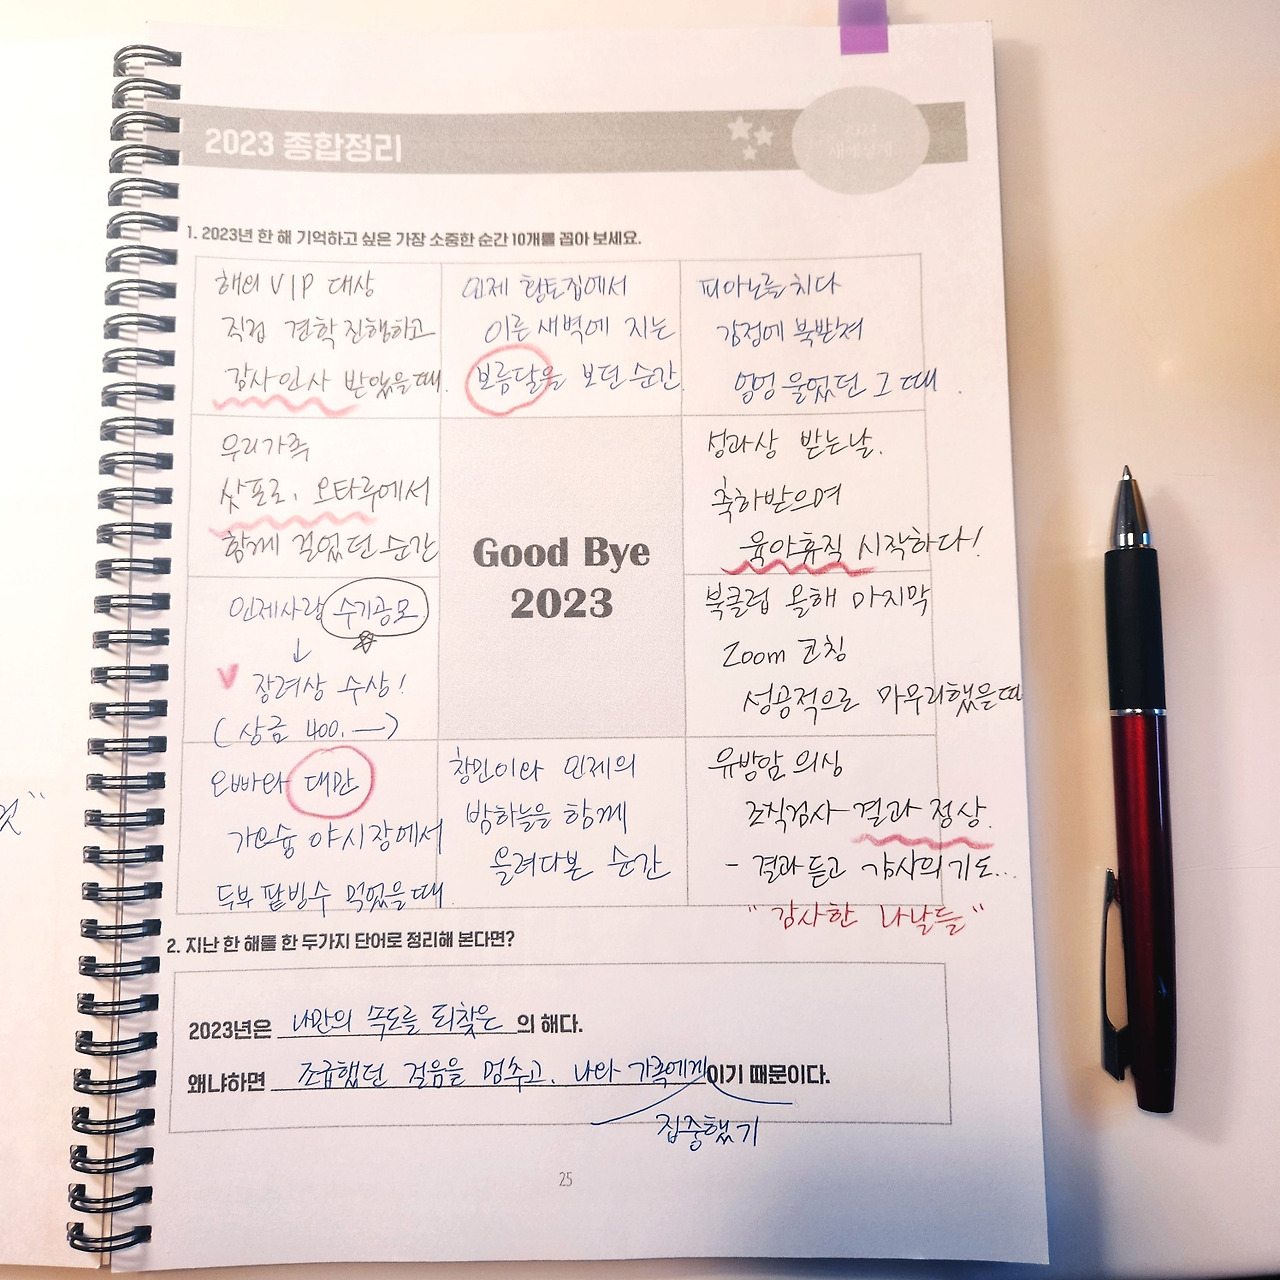 2023 종합정리
2024
새해설계
1. 2023년 한 해 기억하고 싶은 가장 소중한 순간 10개를 꼽아 보세요.
해외 VIP 대상
직접 견학 진행하고
감사인사 받았을때.
인제 황토집에서
이른 새벽에 지는
보름달을 보던 순간.
피아노를 치다
감정에 북받쳐
엉엉 울었던 그 때.
우리가족
삿포로, 오타루에서
함께 걸었던 순간
Good Bye
2023
성과상 받는날.
축하받으며
육아휴직 시작하다!
인제사랑 수기공모
↓
장려상 수상!
(상금 400.—)
북클럽 올해 마지막
Zoom 코칭
성공적으로 마무리했을때
오빠와 대만
가오슝 야시장에서
두부 팥빙수 먹었을때.
창민이와 인제의
밤하늘을 함께
올려다본 순간
유방암 의심
조직검사 결과 정상.
- 결과 듣고 감사의 기도...
"감사한 나날들"
2. 지난 한 해를 한 두가지 단어로 정리해 본다면?
2023년은 나만의 속도를 되찾은 의 해다.
왜냐하면 조급했던 걸음을 멈추고, 나와 가족에게 이기 때문이다.
집중했기
25